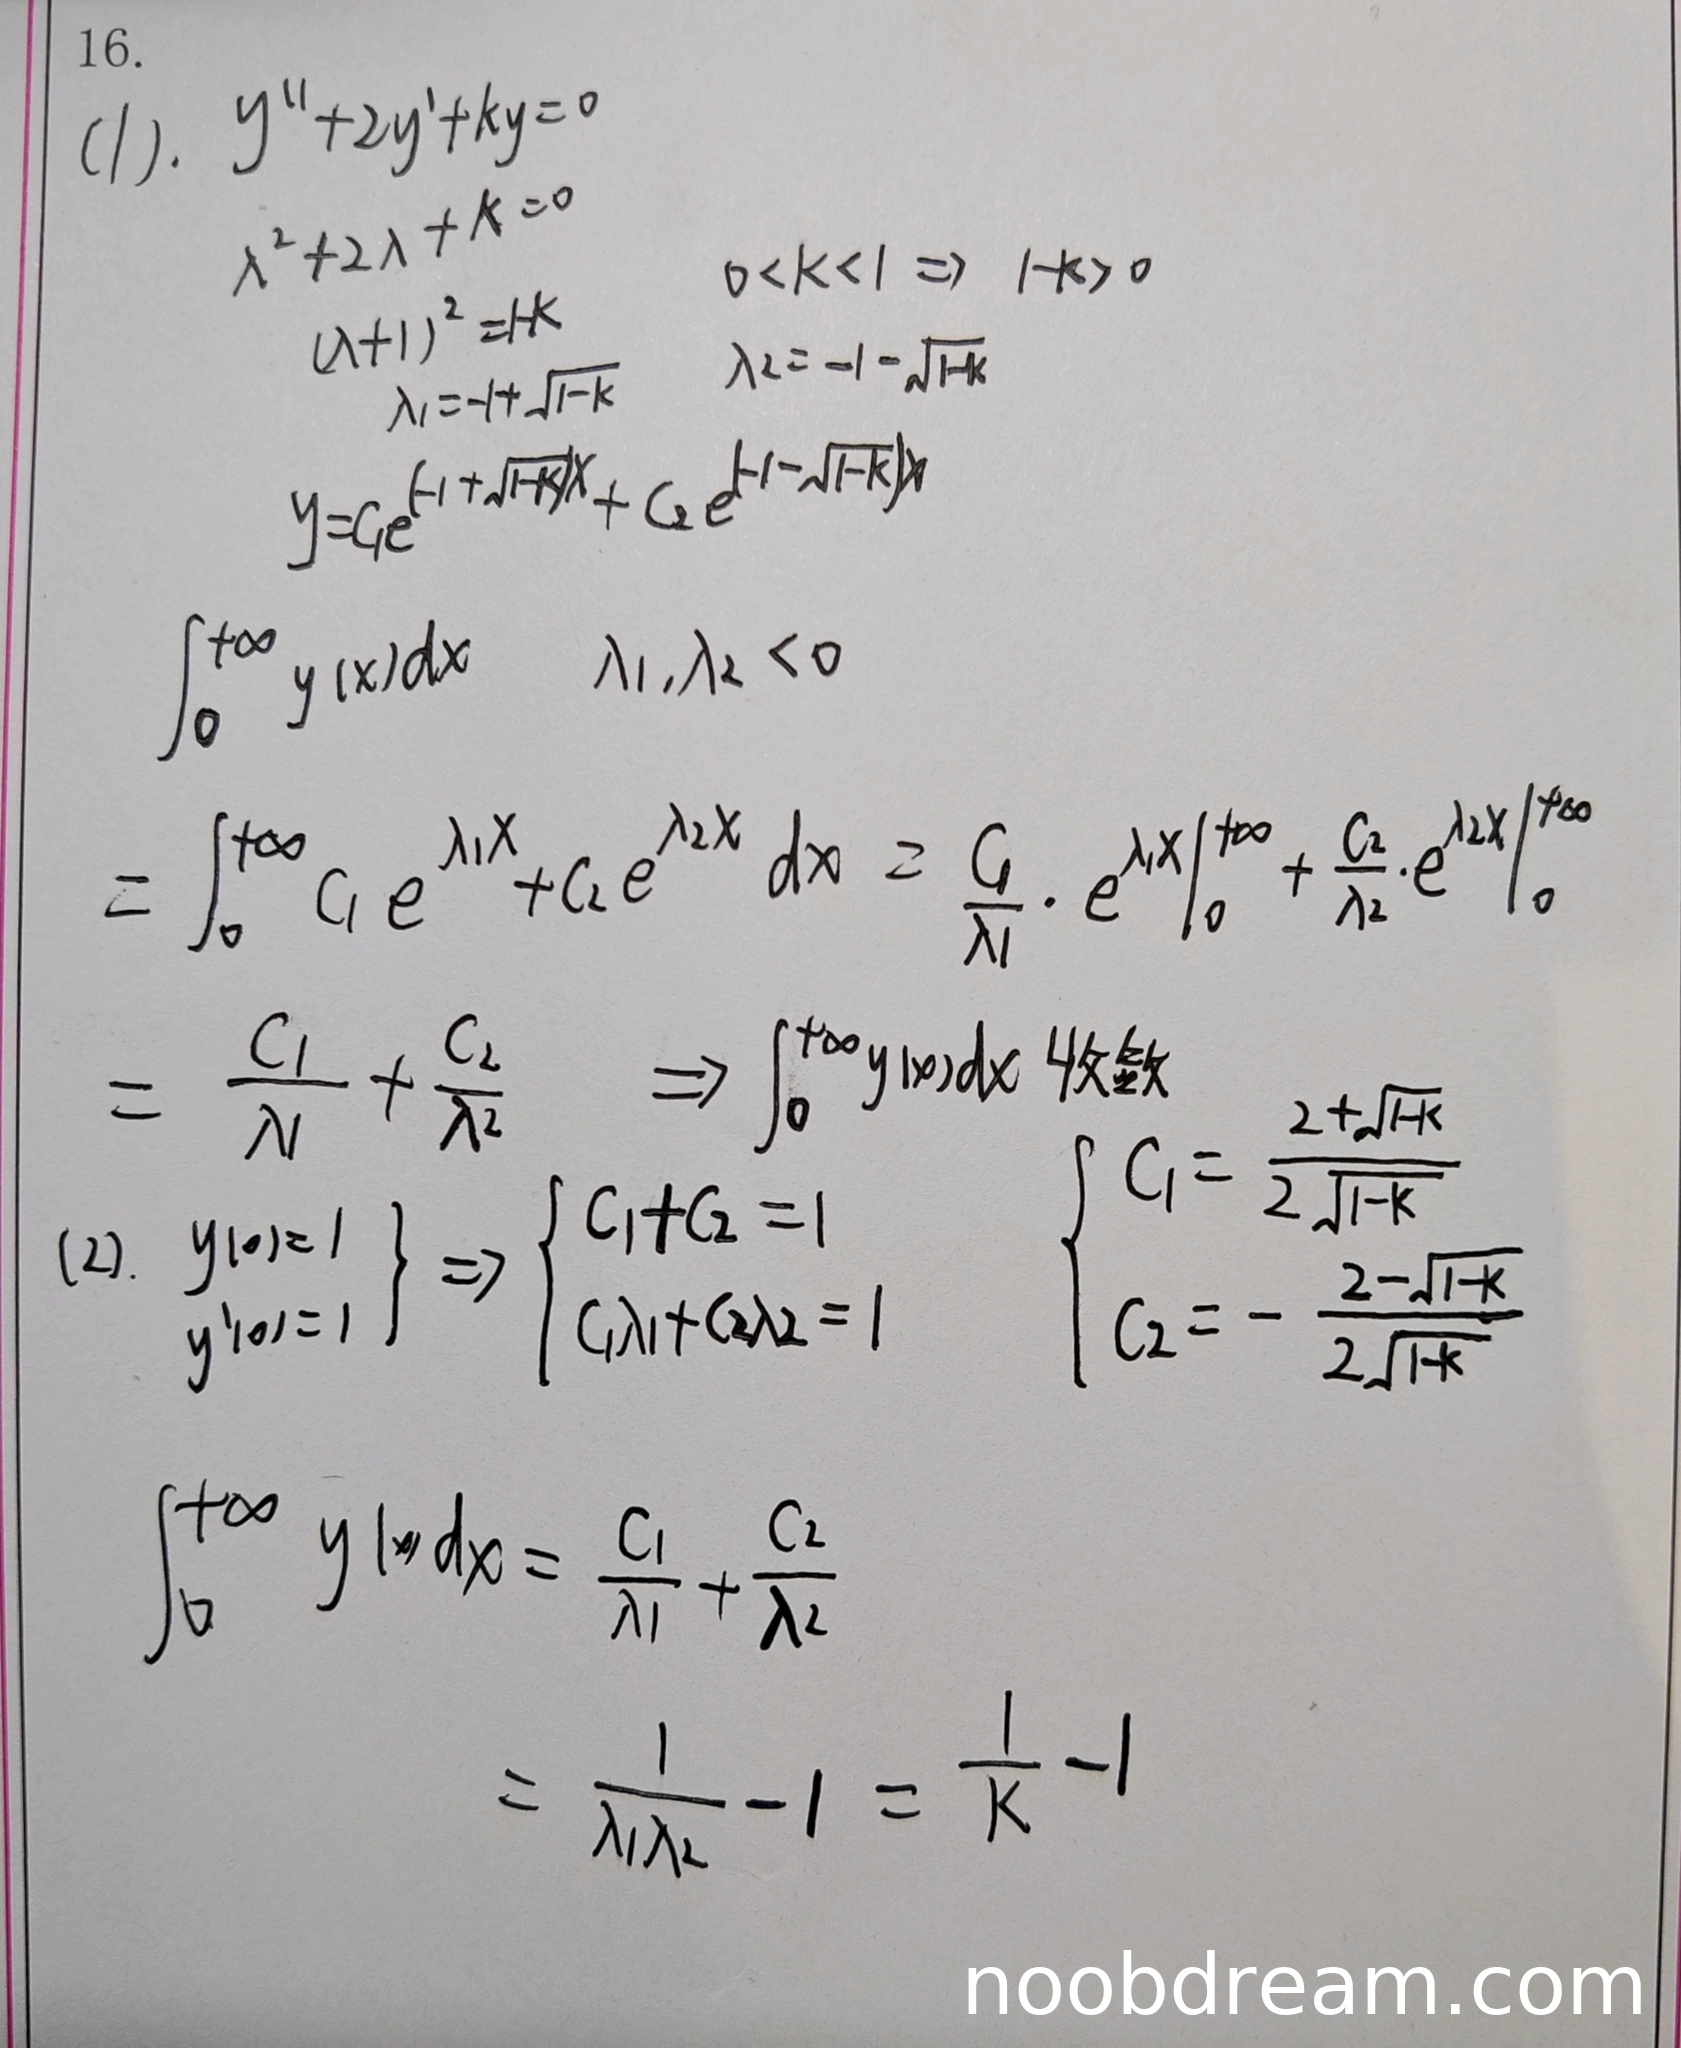 16.
(1). y''+2y'+ky=0
λ²+2λ+k=0
0<k<1 ⇒ 1-k>0
(λ+1)²=1-k
λ1=-1+√(1-k)   λ2=-1-√(1-k)
y=C₁e^{(-1+√(1-k))x}+C₂e^{(-1-√(1-k))x}
∫₀^{+∞} y(x)dx   λ1,λ2<0
=∫₀^{+∞} C₁e^{λ1x}+C₂e^{λ2x} dx = C₁/λ1·e^{λ1x}|₀^{+∞}+C₂/λ2·e^{λ2x}|₀^{+∞}
= C₁/λ1+C₂/λ2 ⇒ ∫₀^{+∞} y(x)dx 收敛
(2). y(0)=1 y'(0)=1 } ⇒ { C₁+C₂=1 C₁λ1+C₂λ2=1   { C₁=(2+√(1-k))/(2√(1-k)) C₂=-(2-√(1-k))/(2√(1-k))
∫₀^{+∞} y(x)dx=C₁/λ1+C₂/λ2
=1/(λ1λ2)-1=1/k-1
noobdream.com